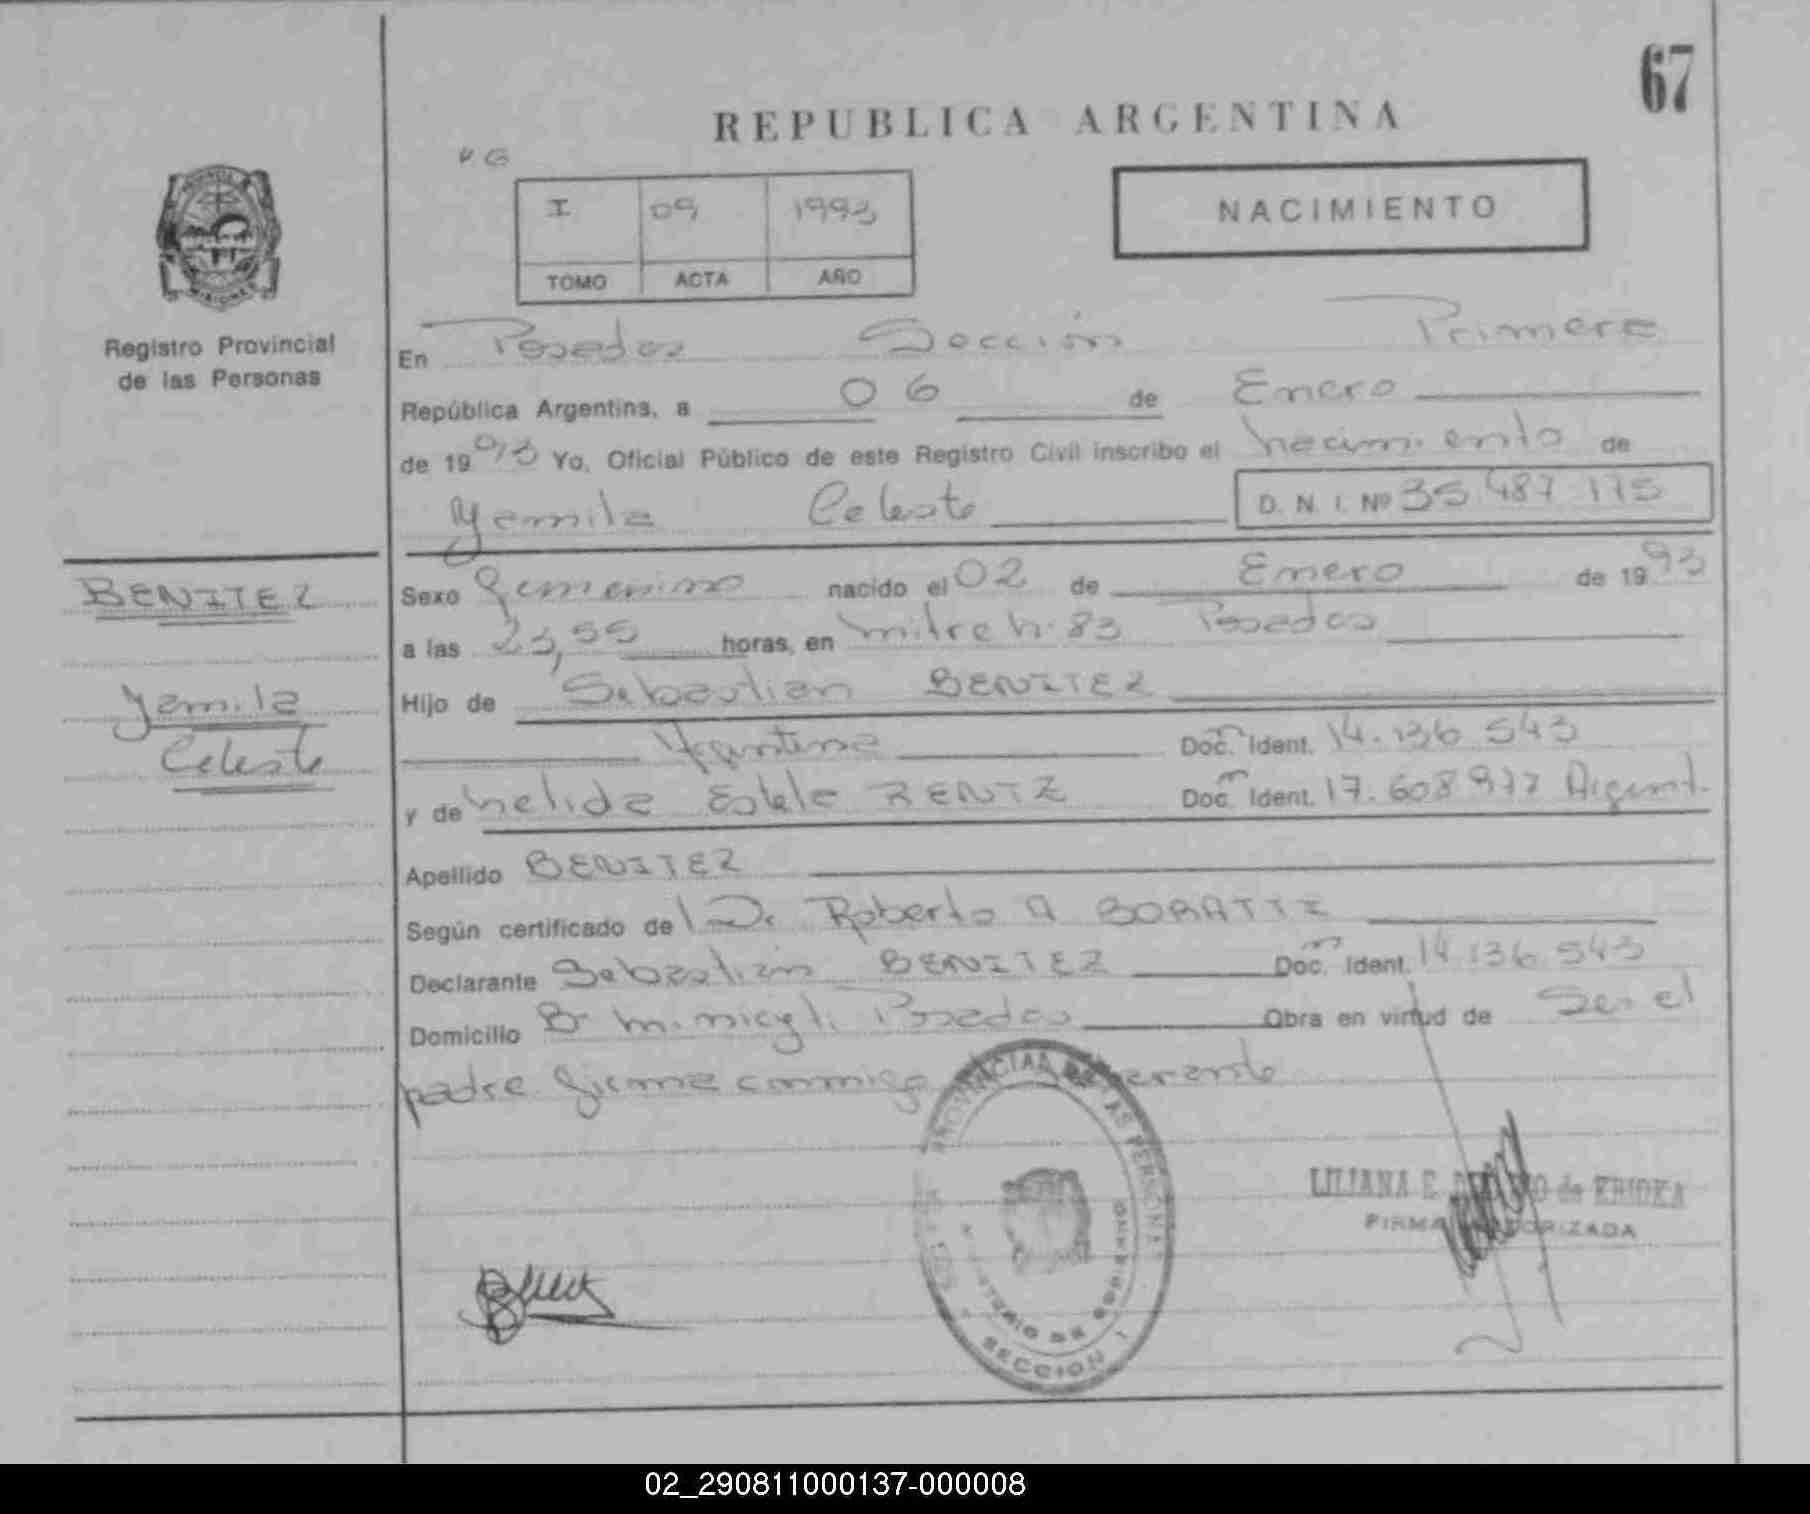 67
REPUBLICA ARGENTINA
I 09 1993
TOMO ACTA AÑO
NACIMIENTO
Registro Provincial
de las Personas
En Posadas Sección Primera
República Argentina, a 06 de Enero
de 1993 Yo, Oficial Público de este Registro Civil inscribo el nacimiento de
Yamila Celeste D. N. I. Nº 35.487.175
BENITEZ
Yamila
Celeste
Sexo Femenino nacido el 02 de Enero de 1993
a las 23,55 horas, en Mitre N. 83 Posadas
Hijo de Sebastian BENITEZ
Argentina Doc. Ident. 14.136.543
y de Nelida Estela ZENTZ Doc. Ident. 17.608.977 Argent.
Apellido BENITEZ
Según certificado de Dr Roberto A BORATTI
Declarante Sebastián BENITEZ Doc. Ident. 14.136.543
Domicilio Bº Posadas Obra en virtud de Ser el
padre firma conmigo
PROVINCIAL DE LAS PERSONAS
MINISTERIO DE GOBIERNO
SECCION
LILIANA E. de
FIRMA AUTORIZADA
02_290811000137-000008